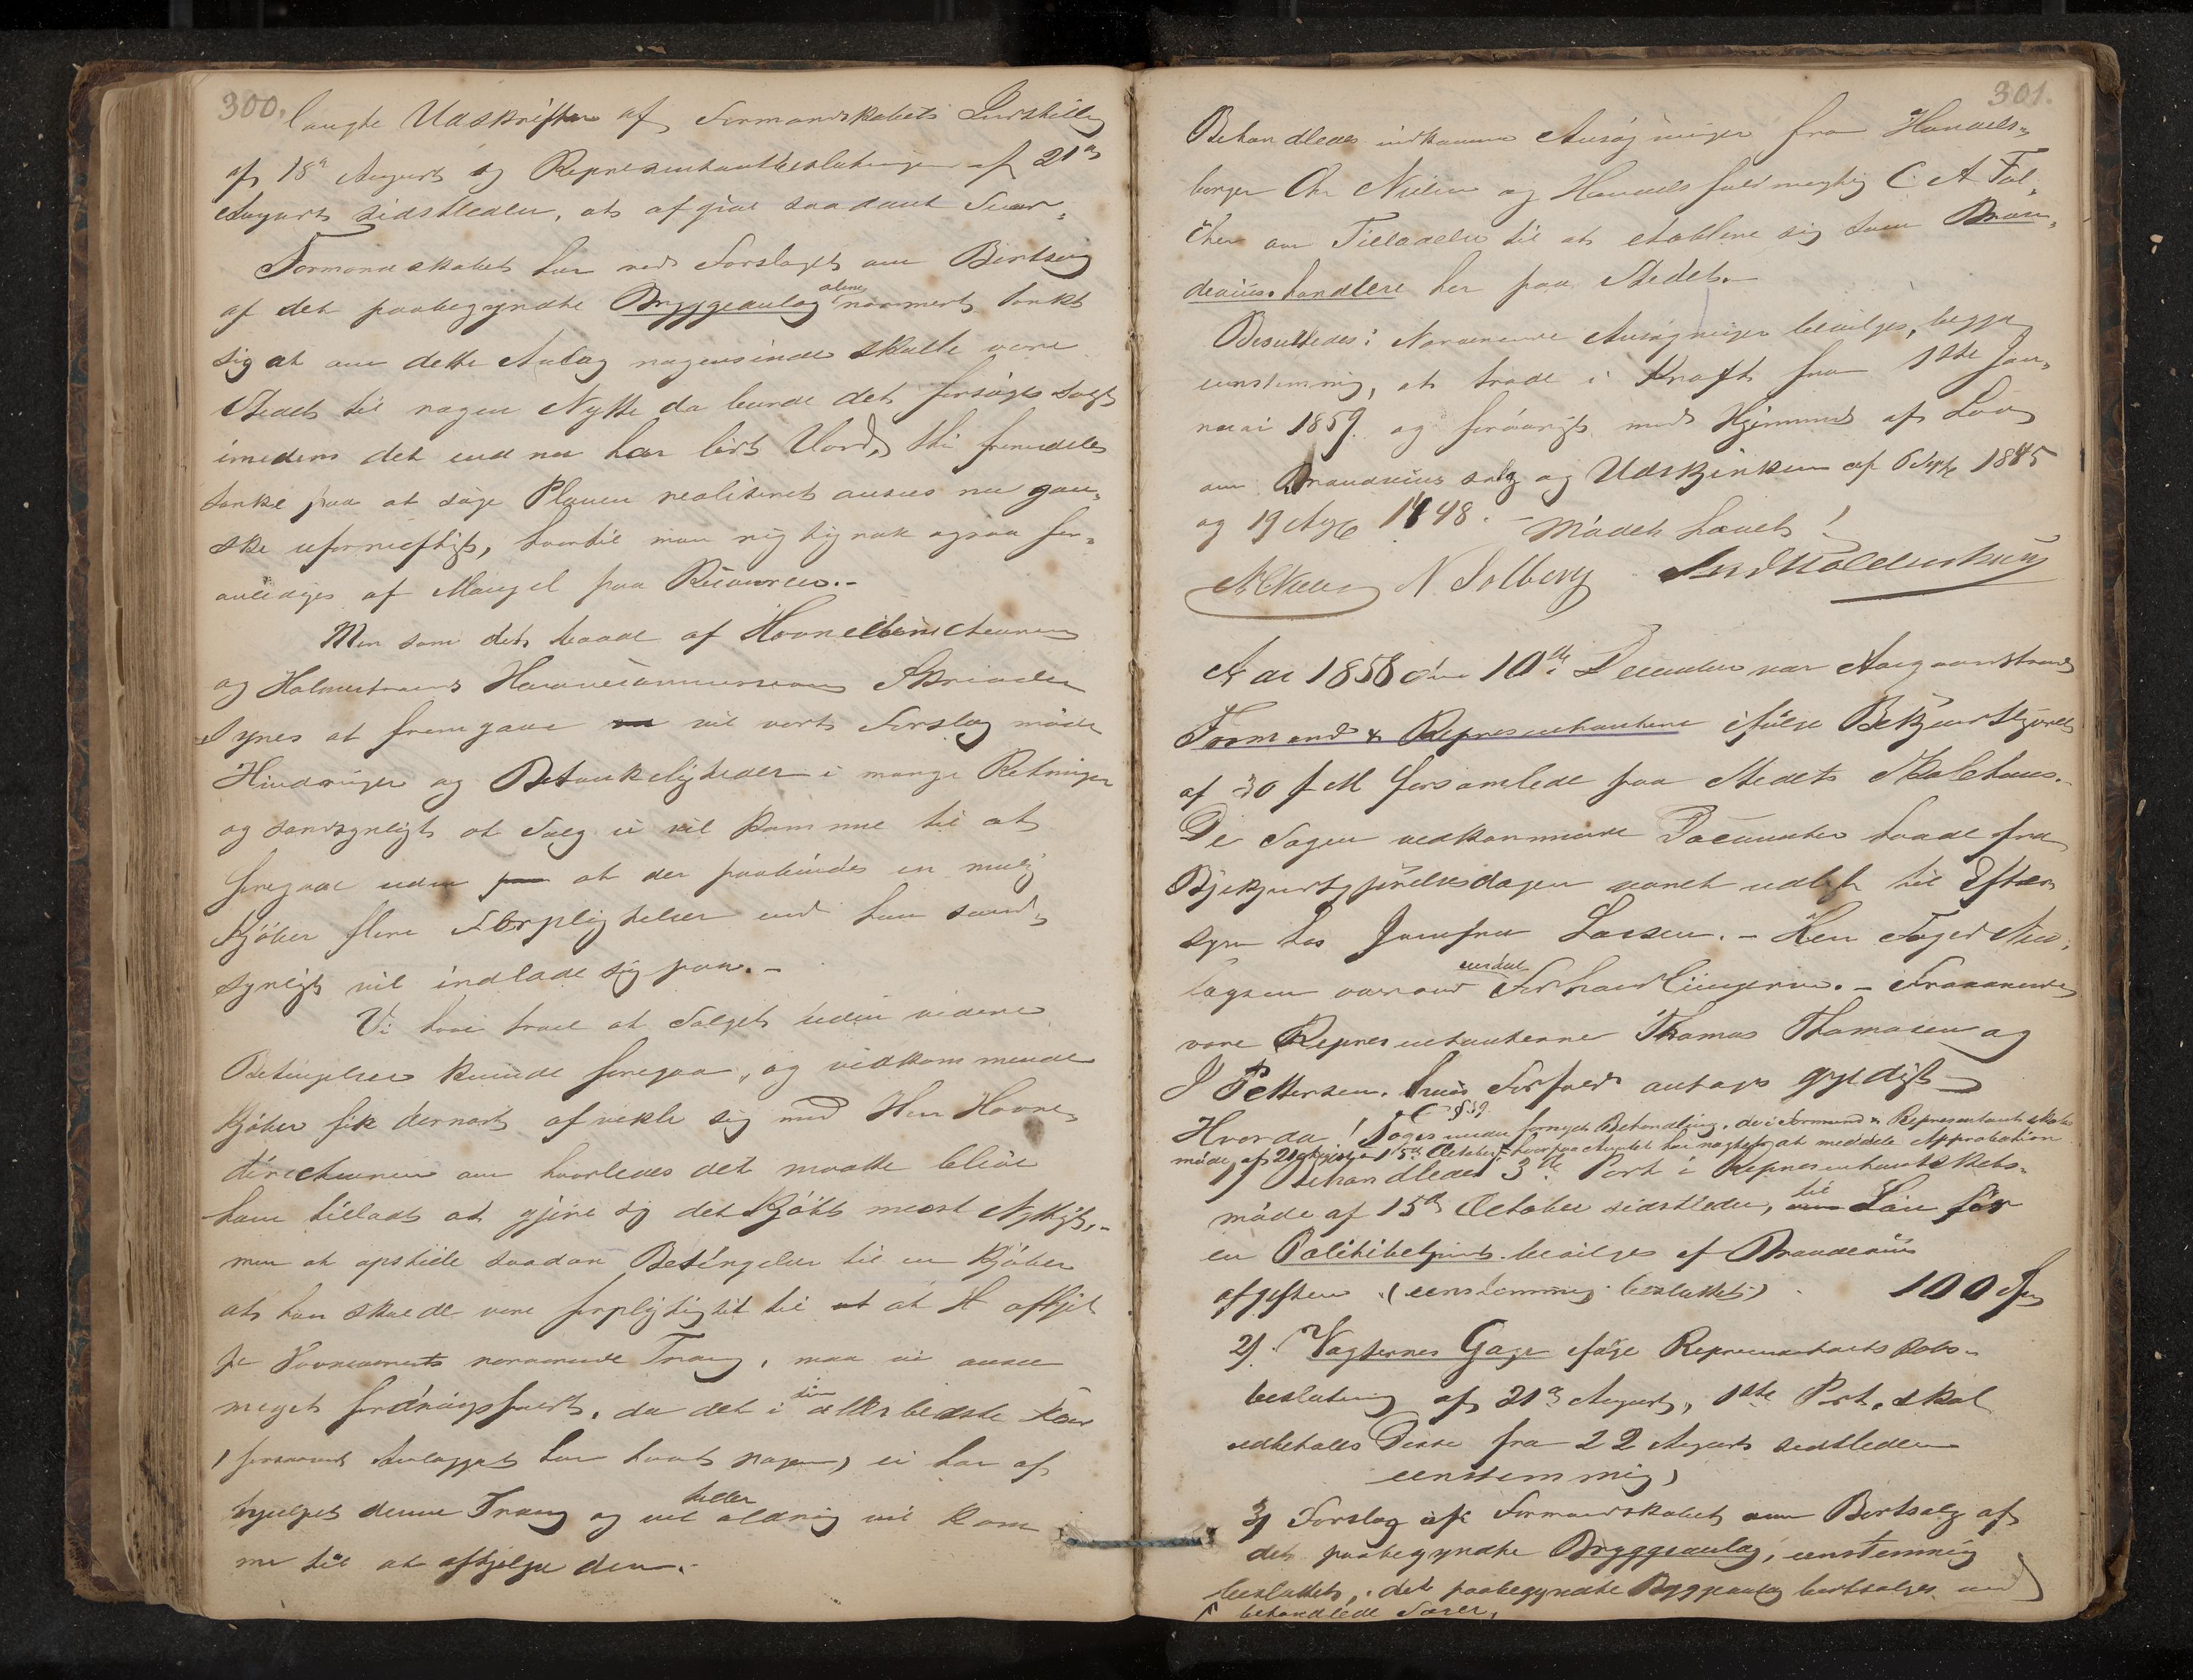 300.
langte Udskrifter af Formandskabets Indstilling
af 18de August og Representantbeslutningen af 21de
August sidstleden, at afgive saadant Svar.
Formandskabet har ved Forslaget om Bortsalg
af det paabegyndte Bryggeanlæg alene nærmest tænkt
sig at om dette Anlæg nogensinde skulle være
Stedet til nogen Nytte da burde det forsøges solgt
imedens det end nu har lidt Værd, thi fremdeles
tænke paa at søge Planen realiseret ansees nu gan-
ske ufornuftigt, hvortil man rigtignok ogsaa for-
anlediges af Mangel paa Resourcer.-
Men som det baade af Havnedirecteuren
og Holmestrands Havnecommissions Skrivelser
synes at fremgaae vil vort Forslag møde
Hindringer og Betænkeligheder i mange Retninger
og sandsynligt at Salg ei vil komme til at
foregaae uden at der paabindes en mulig
Kjøber flere Forpligtelser end han sand-
synligt vil indlade sig paa.-
Vi have troet at Salget uden videre
Betingelser kunde foregaa, og vedkommende
Kjøber fik dernæst afvikle sig med Herr Havne-
directeuren om hvorledes det maatte blive
ham tilladt at gjøre sig det Kjøbte mest Nyttigt,-
men at opstille saadan Betingelse til en Kjøber
at han skulde være forpligtigtet til at afhjel-
pe Havnevæsenets nærværende Trang, maa vi ansee
meget fordringsfuldt, da det i sin allerbedste Tid
forsaavidt Anlægget har havt nogen, ei har af
hjulpet denne Trang og vel heller aldrig vil kom
me til at afhjelpe den.-
301.
Behandledes indkomne Ansøgninger fra Handels-
borger Chr Nielsen og Handelsfuldmægtig C A Fal-
chen om Tilladelse til at etablere sig som Bræn-
deviinshandlere her paa Stedet.-
Besluttedes: Nærværende Ansøgninger bevilges, begge
eenstemmig, at træde i Kraft fra 1ste Jan-
uar 1859. og forøvrigt med Hjemmel af Lov
om Brændeviins salg og Udskjenken af 6 Septbr 1845
og 19 Aug 1848.- Mødet hævet!
N. Solberg
Aar 1858 den 10de December var Aasgaardstrands
Formænd & Representantere ifølge Bekjendtgjørelse
af 30 f M forsamlede paa Stedets Skolehuus.-
De Sagen vedkommende Documenter havde fra
Bekjendtgjørelsesdagen været udlagt til Efter-
syn hos Jomfru Larsen.- Herr Foged
overvar endeel Forhandlingerne.- Fraværende
vare Representanterne Thomas Thomasen og
J Pettersen. hvis Forfald antages gyldigt
Hvorda! Toges under fornyet Behandling, de i Formænd & Representantskabs
møde af 21 August og 15de October, hvorpaa Amtet har nægtet at meddele Approbation
1) Behandledes 3die Post i Representantskabs-
møde af 15de October sidstleden, til Løn for
en Politibetjent bevilges af Brændeviins
afgiften (eenstemmig besluttet) 100 Spd
2) Vægternes Gage ifølge Representantskabs-
beslutning af 21de August, 1ste Post, skal
udbetales Disse fra 22 August sidstleden
eenstemmig,
3) Forslag af Formandskabet om Bortsalg af
det paabegyndte Bryggeanlæg, eenstemmig
besluttet, det paabegyndte Bryggeanlæg bortsælges ved
behandlede Sager,